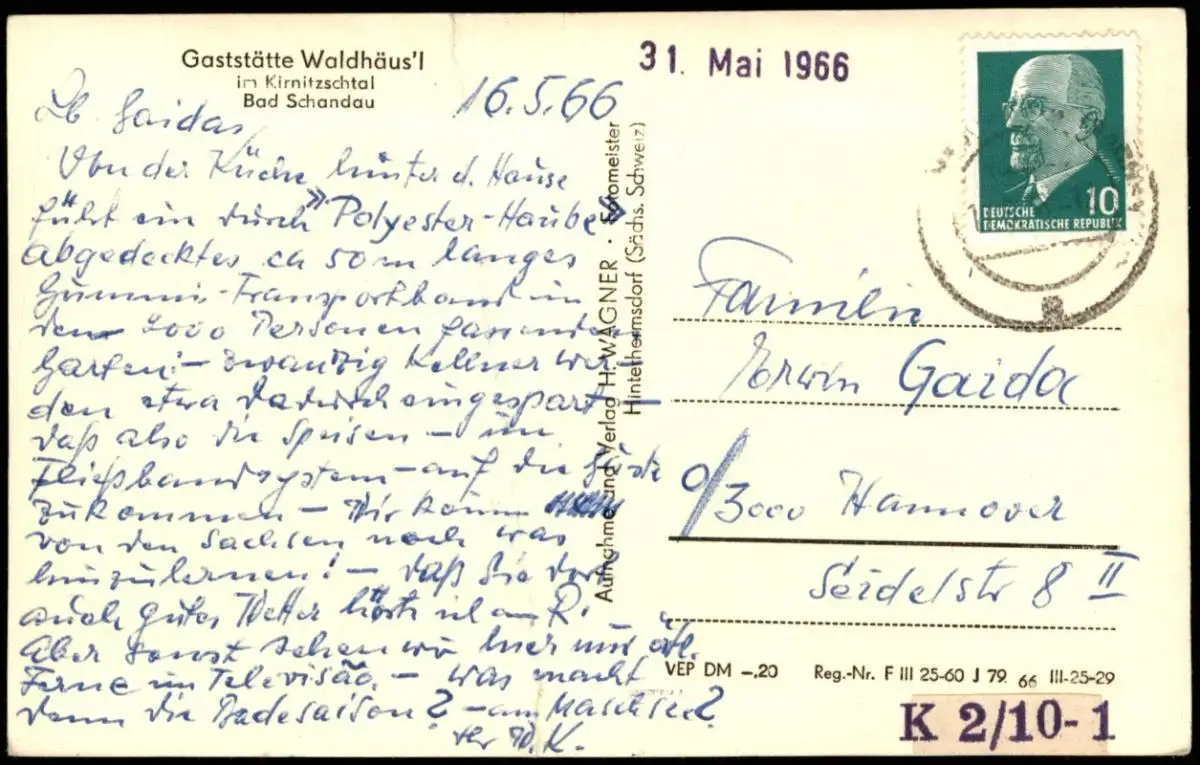 Gaststätte Waldhäus'l
im Kirnitzschtal
Bad Schandau
16.5.66
Lb Gaidas
Von der Küche hinter d. Hause
führt ein durch "Polyester-Haube"
abgedecktes ca 50m langes
Gummi-Transportband in
den 2000 Personen fassenden
Garten! – zwanzig Kellner wer-
den etwa dadurch eingespart –
daß also die Speisen – im
Fließbandsystem – auf die Gäste
zukommen – Wir können
von den Sachsen noch was
hinzulernen! – daß Sie dort
auch gutes Wetter hört ich am R.
Aber sonst sehen wir hier nur
Ferne im Televisão. – was macht
denn die Badesaison? – am Maschsee?
Ihr W. K.
Aufnahme und Verlag H. WAGNER · Fotomeister
Hinterhermsdorf (Sächs. Schweiz)
31. Mai 1966
10
DEUTSCHE
DEMOKRATISCHE REPUBLIK
Familie
Erwin Gaida
3000 Hannover
Seidelstr 8 II
VEP DM –,20 Reg.-Nr. F III 25-60 J 79 66 III-25-29
K 2/10-1